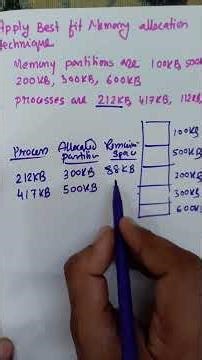 Apply Best fit Memory allocation
technique
Memory partitions are 100KB, 500
200KB, 300KB, 600KB
processes are 212KB, 417KB, 112K
100KB
500KB
200KB
300KB
600K
Process Allocated partition Remaining space
212KB 300KB 88KB
417KB 500KB